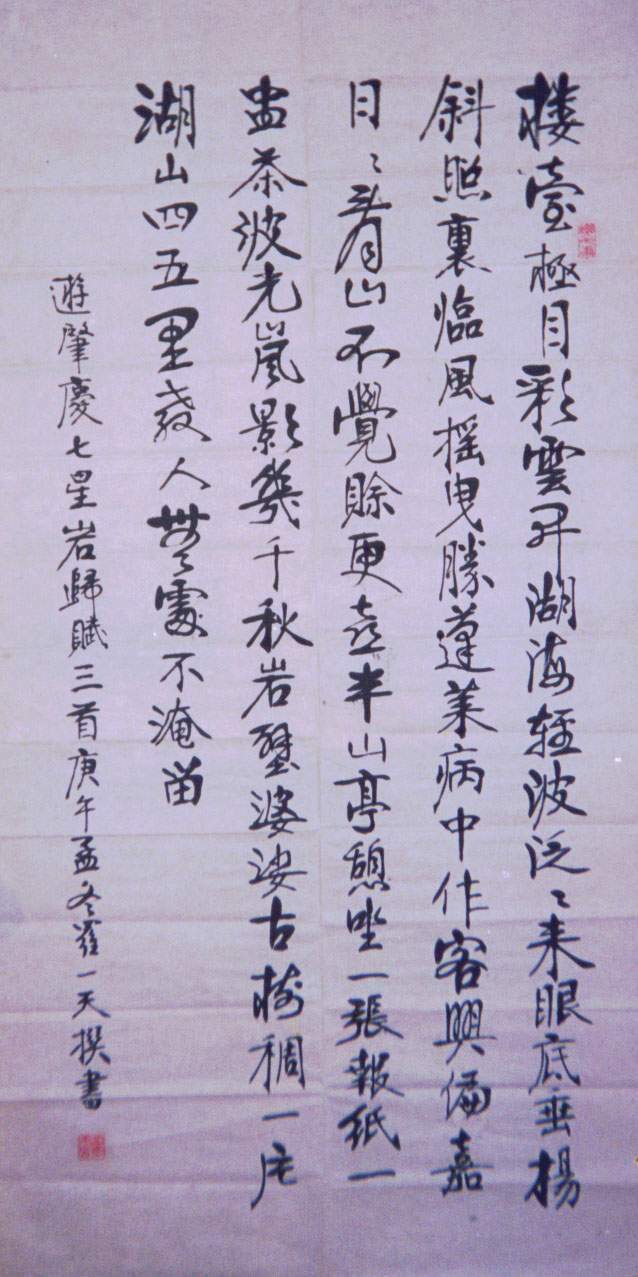 楼臺極目彩雲開湖海輕波泛〻来眼底垂楊
斜照裏臨風摇曳勝蓬莱病中作客興偏嘉
日〻看山不覺賒更喜半山亭憩坐一張報紙一
盅茶波光嵐影幾千秋岩壁婆娑古樹稠一片
湖山四五里教人無處不淹留
遊肇慶七星岩歸賦三首庚午孟冬羅一天撰書